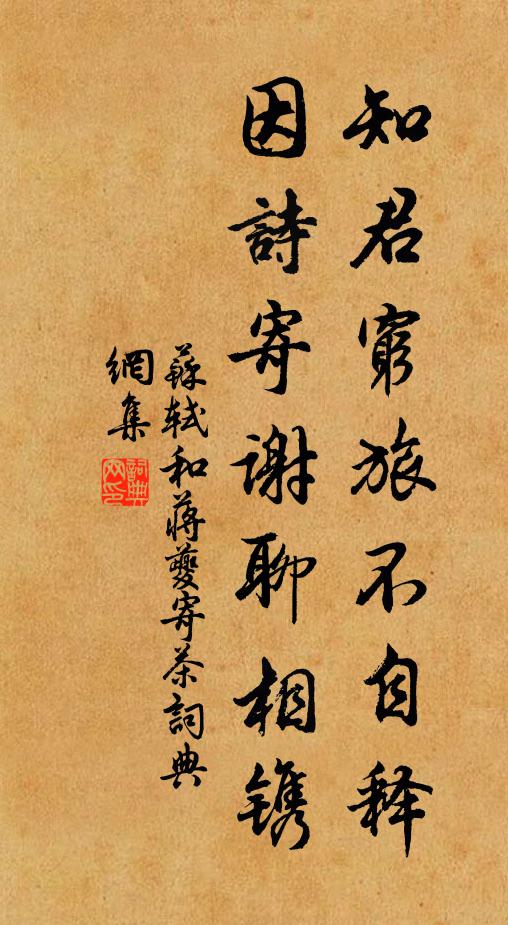 知君窮旅不自释
因詩寄謝聊相镌
蘇軾和蔣夔寄茶詞典
網集
詞典
网印